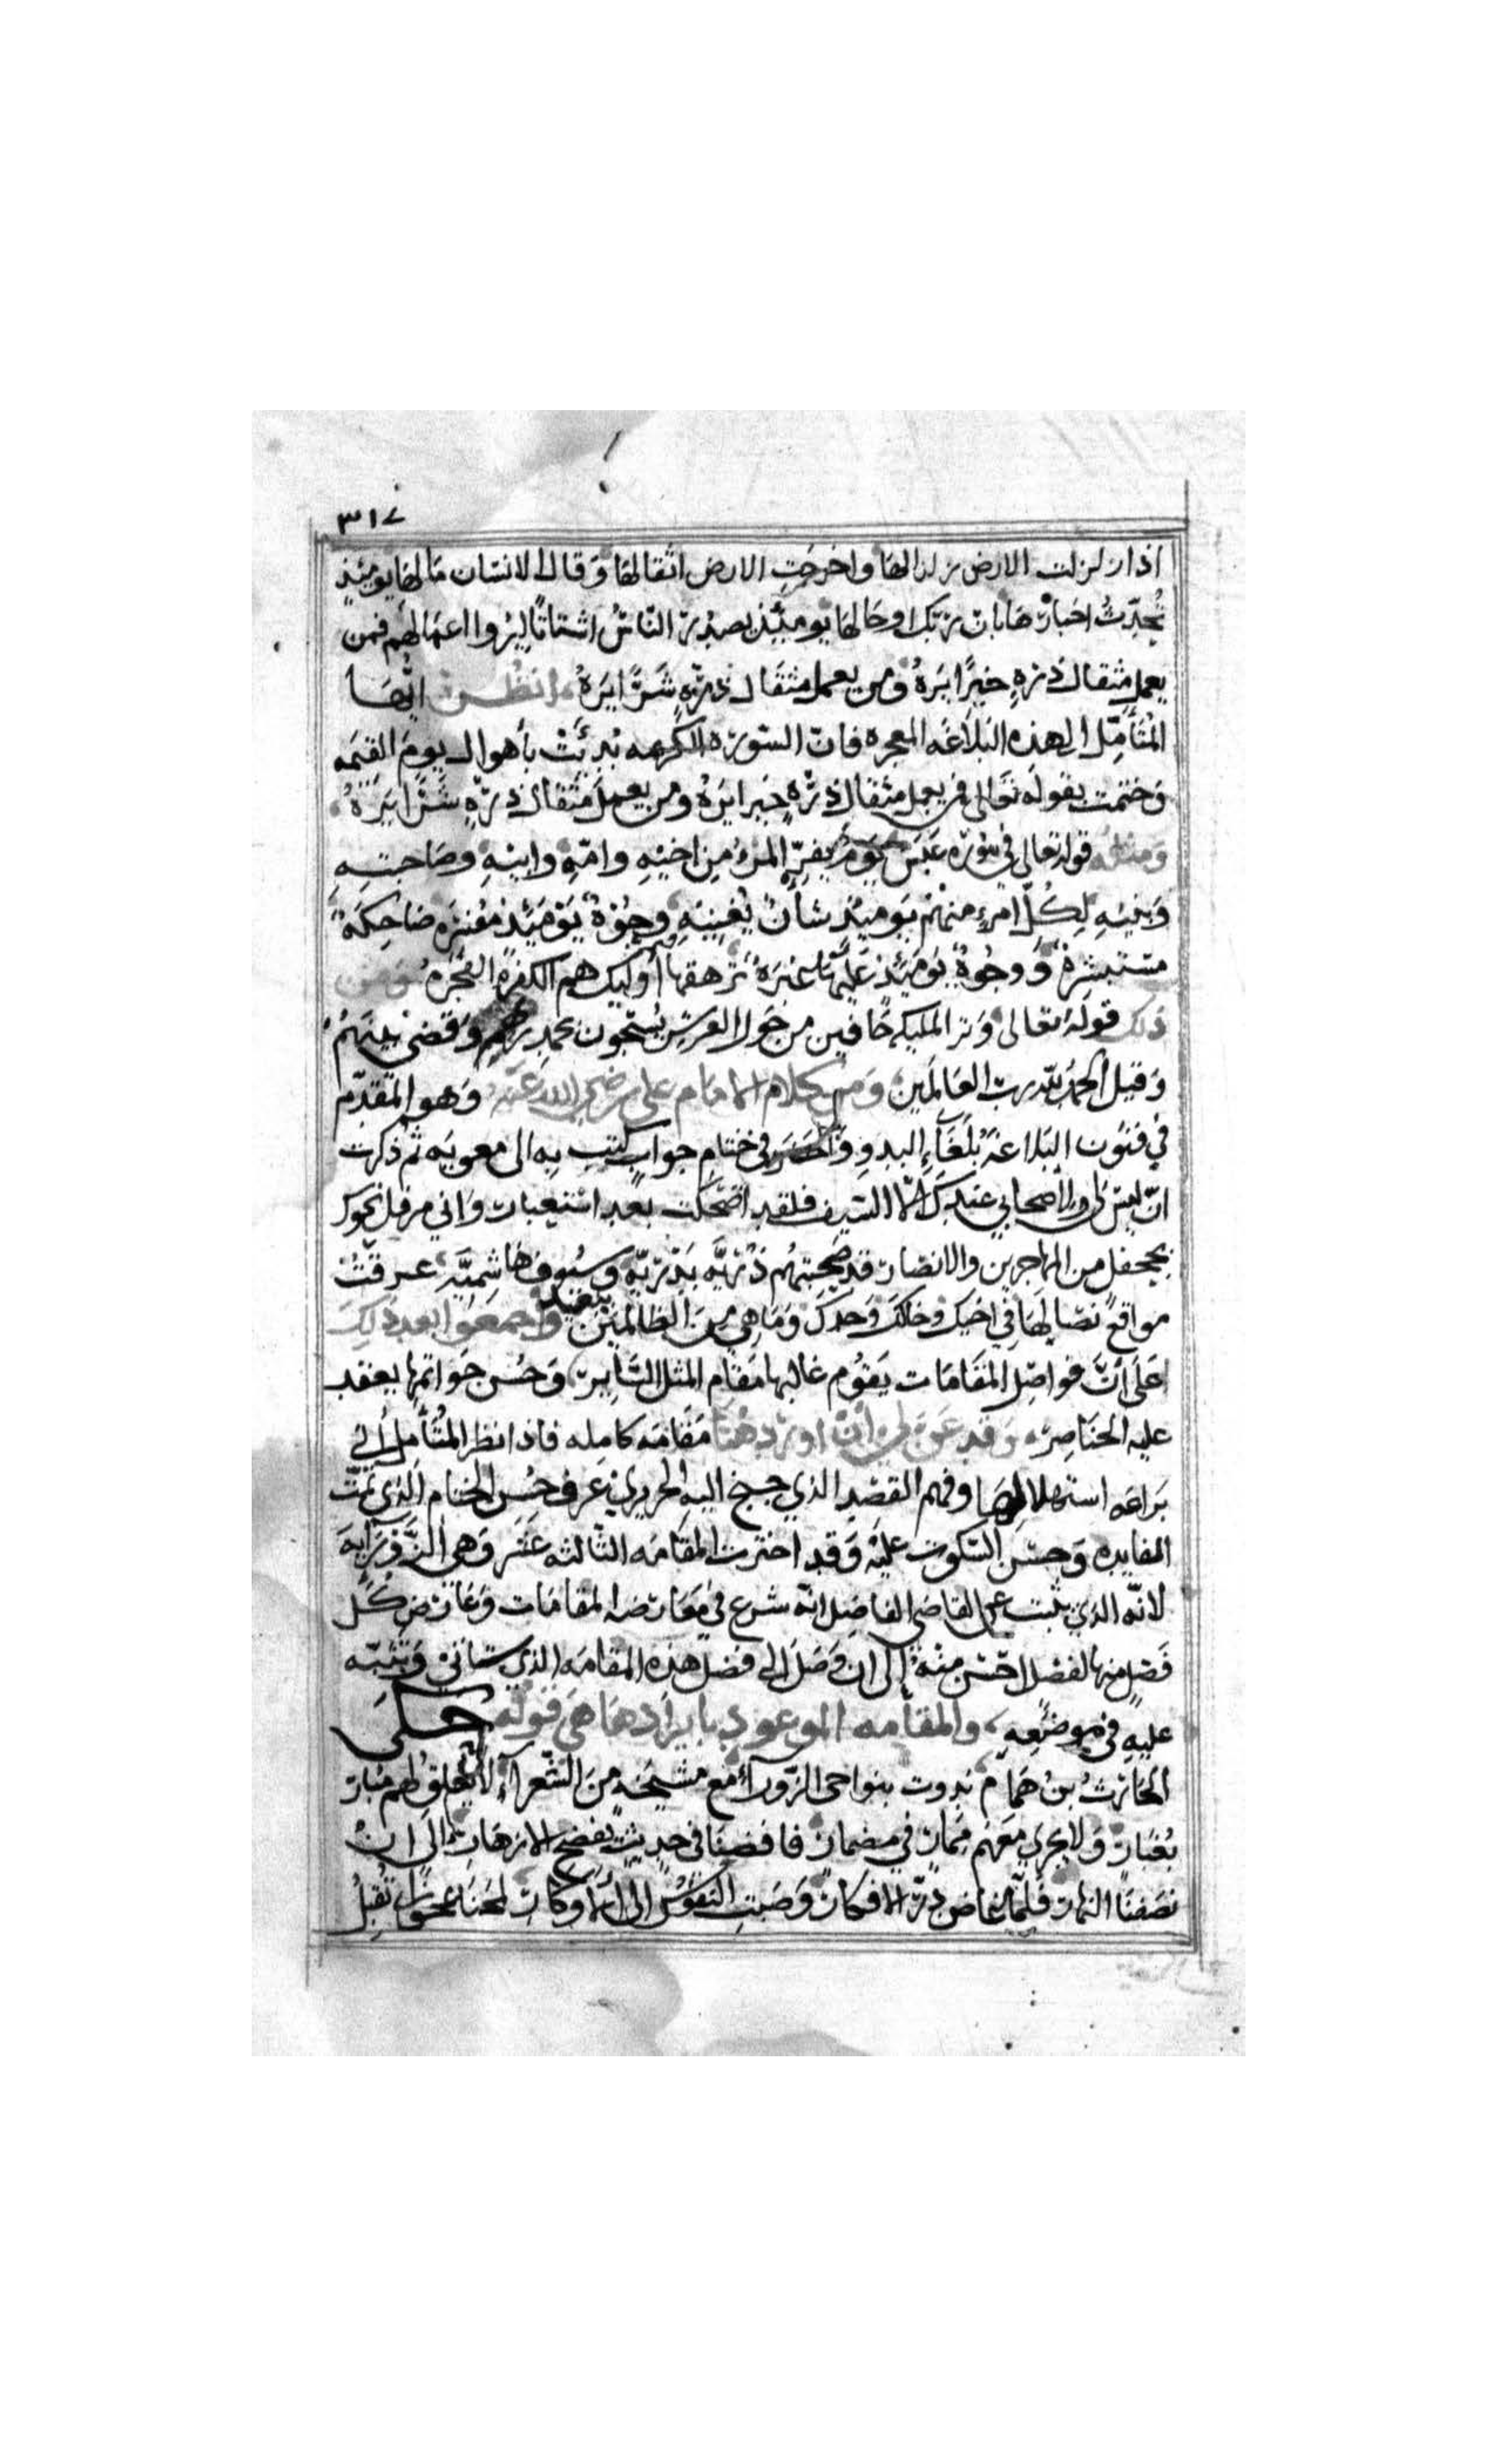 ٣١٧
اذا زلزلت الارض زلزالها واخرجت الارض اثقالها وقال الانسان مالها يومئذ
تُحدّثُ اخبارها بان ربّك اوحى لها يومئذ يصدر النّاسُ اشتاتًا لِيُروا اعمالهم فمن
يعمل مثقال ذرّةٍ خيرًا يرهُ ومن يعمل مثقال ذرّةٍ شرًّا يَرهُ انظر ايّها
المتأمّل الى هذه البلاغه المعجزه فانّ السّورة الكريمه بُدِئَتْ بأهوال يوم القيمه
وختمت بقوله تعالى فمن يعمل مثقال ذرّةٍ خيرا يره ومن يعمل مثقال ذرّةٍ شرًّا يَرَهُ
ومثله قوله تعالى في سورة عبس يَومَ يفرّ المرءُ من اخيهِ وامّهِ وابيهِ وصَاحبتِهِ
وَبنيهِ لِكُلّ امرءٍ منهُم يَوميذٍ شأنٌ يُغنيهِ وجُوهٌ يَوْمَئذٍ مُسْفِرَه ضاحِكَة
مستبشرة وَوجُوهٌ يَومَئِذٍ عَليْها غبَرَةٌ ترهقها قترة أوليك هم الكفرة الفجَرَه ومن
ذلك قوله تعالى وترا المليكه حَافين من حَول العرش يُسبّحون بحمدِ ربّهم وَقضى بينهُم
وَقيل الحمدُ للهِ ربّ العَالَمين وَمن كلام الامام على رضي الله عَنه وَهو المقدّم
في فنُون البَلاغة بُلَغَاءِ البدوِ والحضر في ختام جواب كتب به الى معويه ثم ذكرت
ان ليس لي ولاصحابي عندك الّا السّيف فلقد اضحكت بعد استعبار وَاني مرقل نحوك
بجحفل من المهاجرين والانصار قد صحبتهُم ذرّيّه بَدْريّه وسيُوف هَاشِميَّه عرفتُ
مواقعَ نصَالِها في اخيك وخالكَ وَجدكَ وَمَا هي مِنَ الظالمينَ ببَعيد وَاجمَعُوا بعد ذلك
عَلَى انَّ فواصِل المقَامَات يَقوُم غالبها مَقام المثل السّائر وَحُسن خَواتمها يعقد
عليه الخناصر وَقد عَنّ لي أن اورد هُنا مَقامَه كامله فاذا نظر المُتأمِل الى
بَراعَه استهلالها وفهم القصْد الذي جنح اليه الحريري عرف حُسن الختام الذي تمّت
الفايده وَحسُن السّكوت عليْهُ وَقد اخترت المقامَه الثّالثه عَشَر وَهي الزَّوْرَايه
لانّه الذي يثبت عن القاضي الفاضِل انّه شرع في مُعَارضه المقامَات وَعَارض كلّ
فَصْل منها بفصل احسَن منهُ إلى ان وَصَل الى فصل هذه المقامَه الذي سَيأتي وَننبّه
عليهِ في موضعِهِ والمقامه الموعود بايرادها هي قوله حكى
الحَارثُ بنُ همّام ندوت بنواحى الزّورآءِ مَع مشيَخةٍ من الشّعرآءِ لا يَعلق لهم مُبارٍ
بغُبَار وَلا يجري مَعَهُم مُمارٍ في مضمار فافضنا في حديثٍ يفضح الازهار الى ان
نصَفنا النهار فلمّا غاض درّ الافكار وَصَبتِ النفوس الى الاوكار لمحنا عجوزًا تُقبِلُ